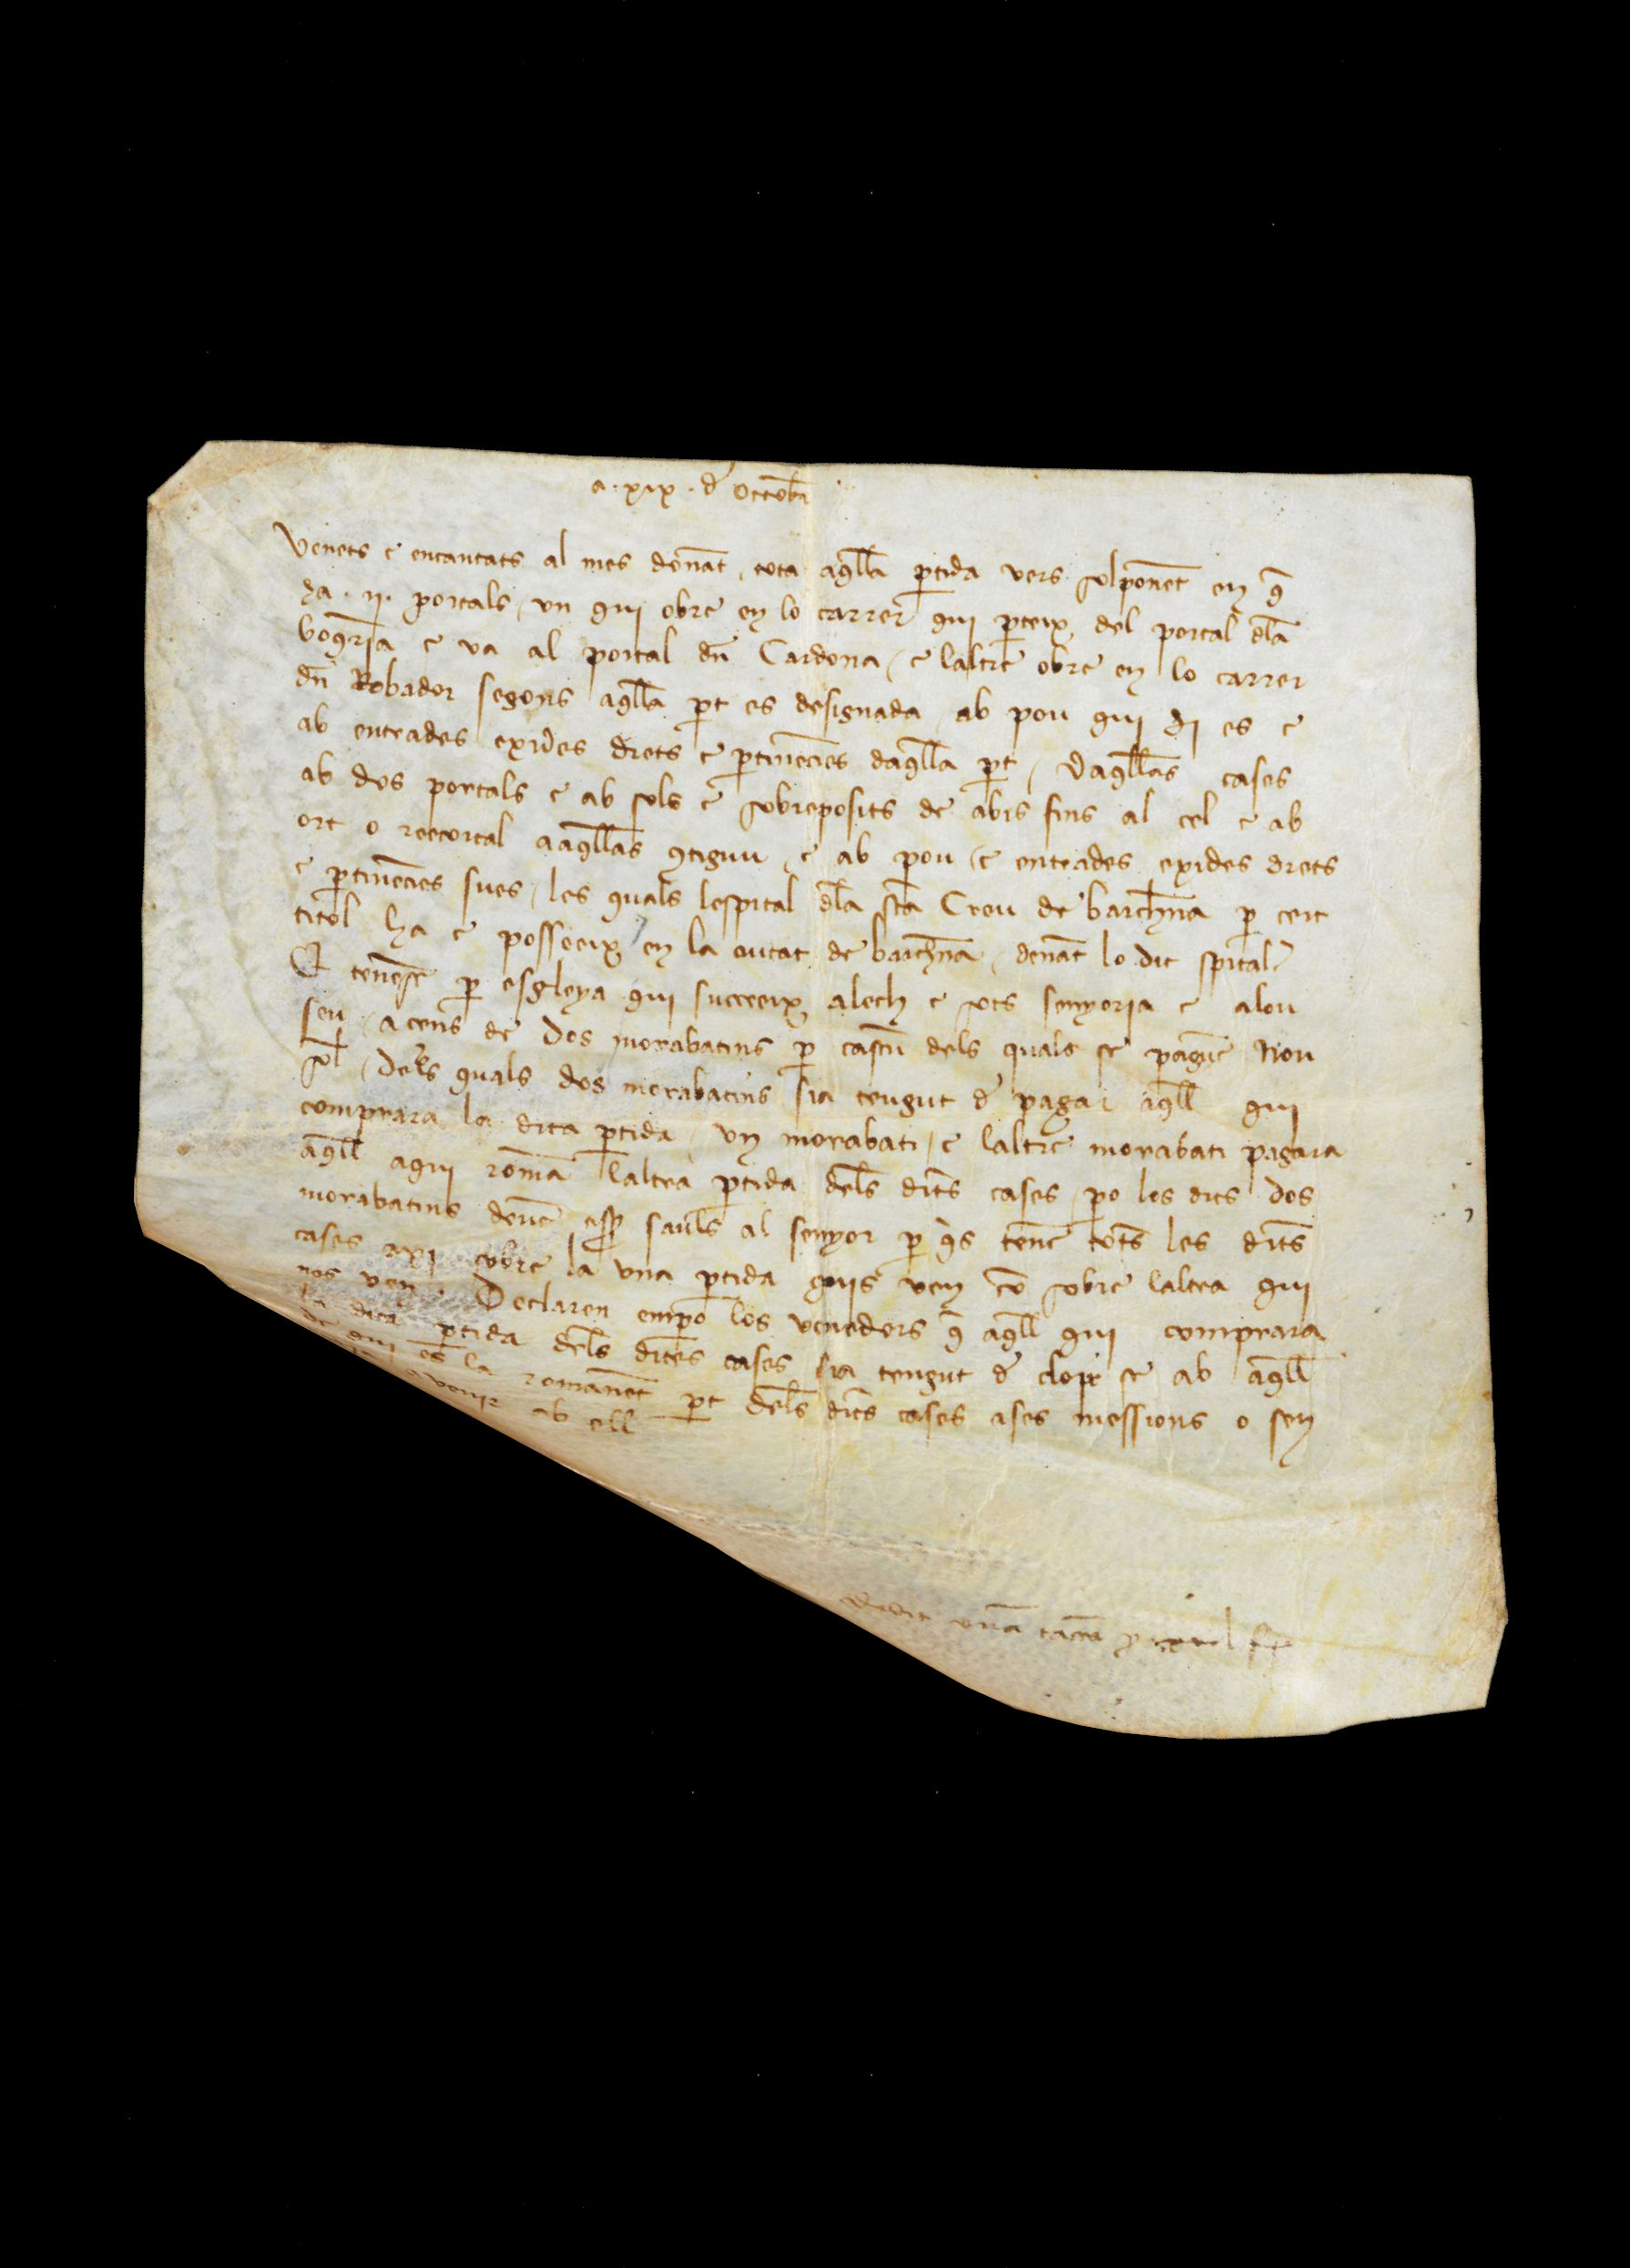 a .xix. d octobr
Venets e encantats al mes donãt, tota aq̃lla ptida vers solponẽt en q̃
ha .ii. portals, un qui obre en lo carrer qui pteix del portal dla
boq̃ria e va al portal dñ Cardona, e laltre obre en lo carrer
dñ Robador segons aq̃lla pt es designada, ab pou qui hi es e
ab entrades exides drets e ptinẽcies daq̃lla pt, daq̃llas cases
ab dos portals e ab sols e sobreposits de abis fins al cel e ab
ort o reecortal a aq̃llas 9tiguu, e ab pou, e entrades exides drets
e ptinẽcies sues, les quals lespital dla sta Creu de barchna p cert
titol ha e posseeix en la ciutat de barchna, denãt lo dit spital
E tenẽse p esgleya qui succeeix aloch e sots senyoria e alou
seu, a cens de dos morabatins p cascũ dels quals se pague nou
sol, dels quals dos morabatins sia tengut d pagar aq̃ll qui
comprara la dita ptida, un morabati, e laltre morabati pagara
aq̃ll aqui romã laltra ptida dels dits cases, po los dits dos
morabatins deuẽ esser sauls al senyor p qs tenẽ totes les dits
cases axi sobre la una ptida quis ven cõ sobre laltra qui
nos ven. Declaren empo los venedors q̃ aq̃ll qui comprara
la dita ptida dels dites cases sia tengut d cloire se ab aq̃ll
de qui es la romanẽt pt dels dits cases a ses messions o sen
a venir ab ell
dedit unã